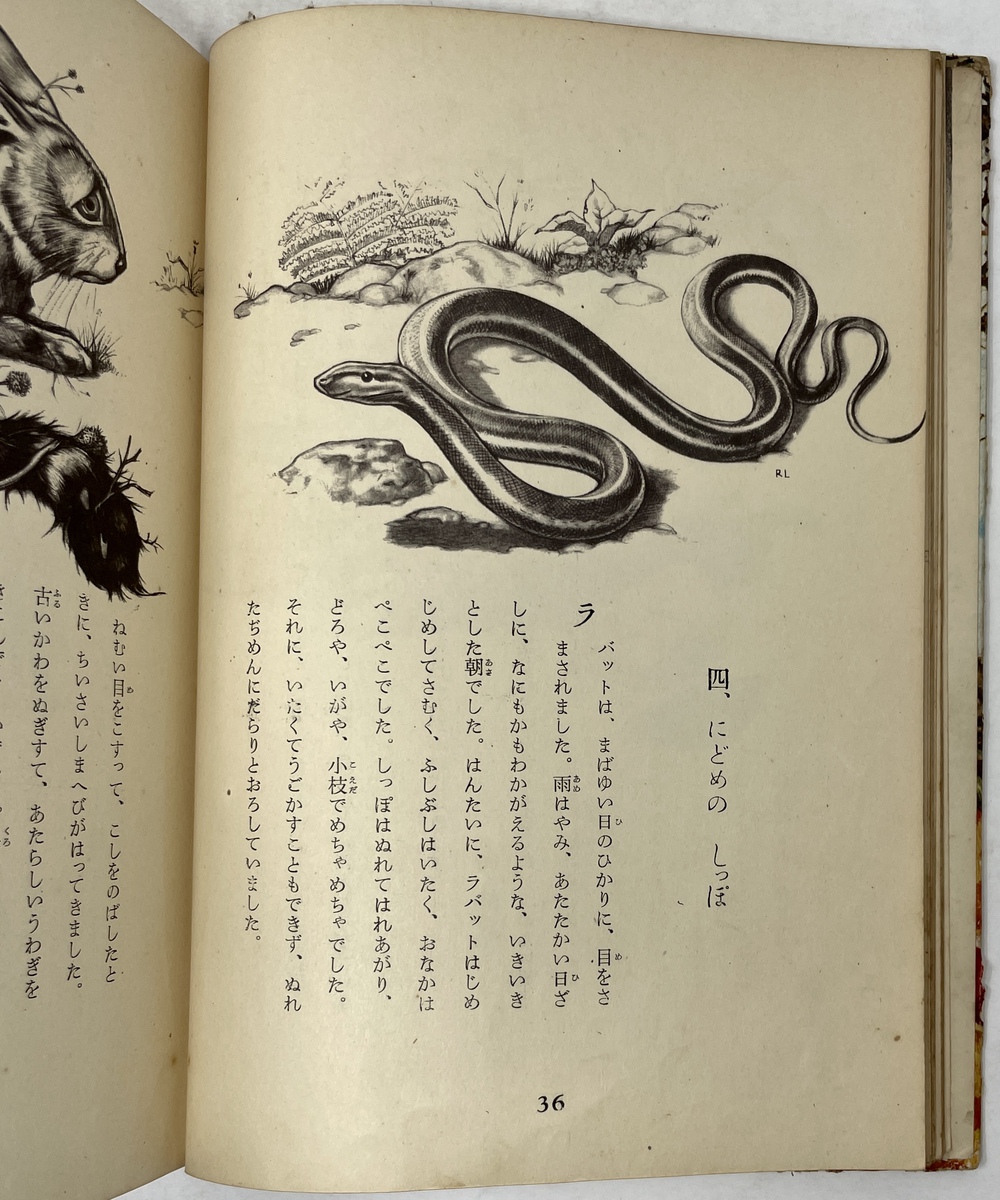 RL
四、にどめの しっぽ
ラバットは、まばゆい日のひかりに、目をさ
まされました。雨はやみ、あたたかい日ざ
しに、なにもかもわかがえるような、いきいき
とした朝でした。はんたいに、ラバットはじめ
じめしてさむく、ふしぶしはいたく、おなかは
ぺこぺこでした。しっぽはぬれてはれあがり、
どろや、いがや、小枝でめちゃめちゃでした。
それに、いたくてうごかすこともできず、ぬれ
たぢめんにだらりとおろしていました。
36
ねむい目をこすって、こしをのばしたと
きに、ちいさいしまへびがはってきました。
古いかわをぬぎすて、あたらしいうわぎを